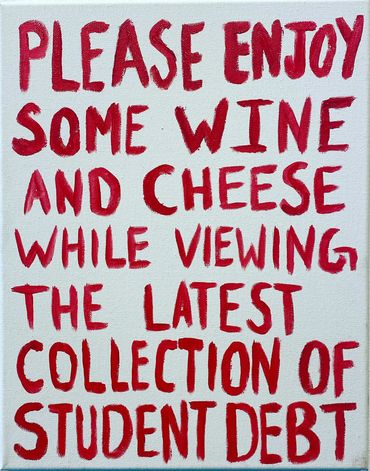 PLEASE ENJOY
SOME WINE
AND CHEESE
WHILE VIEWING
THE LATEST
COLLECTION OF
STUDENT DEBT